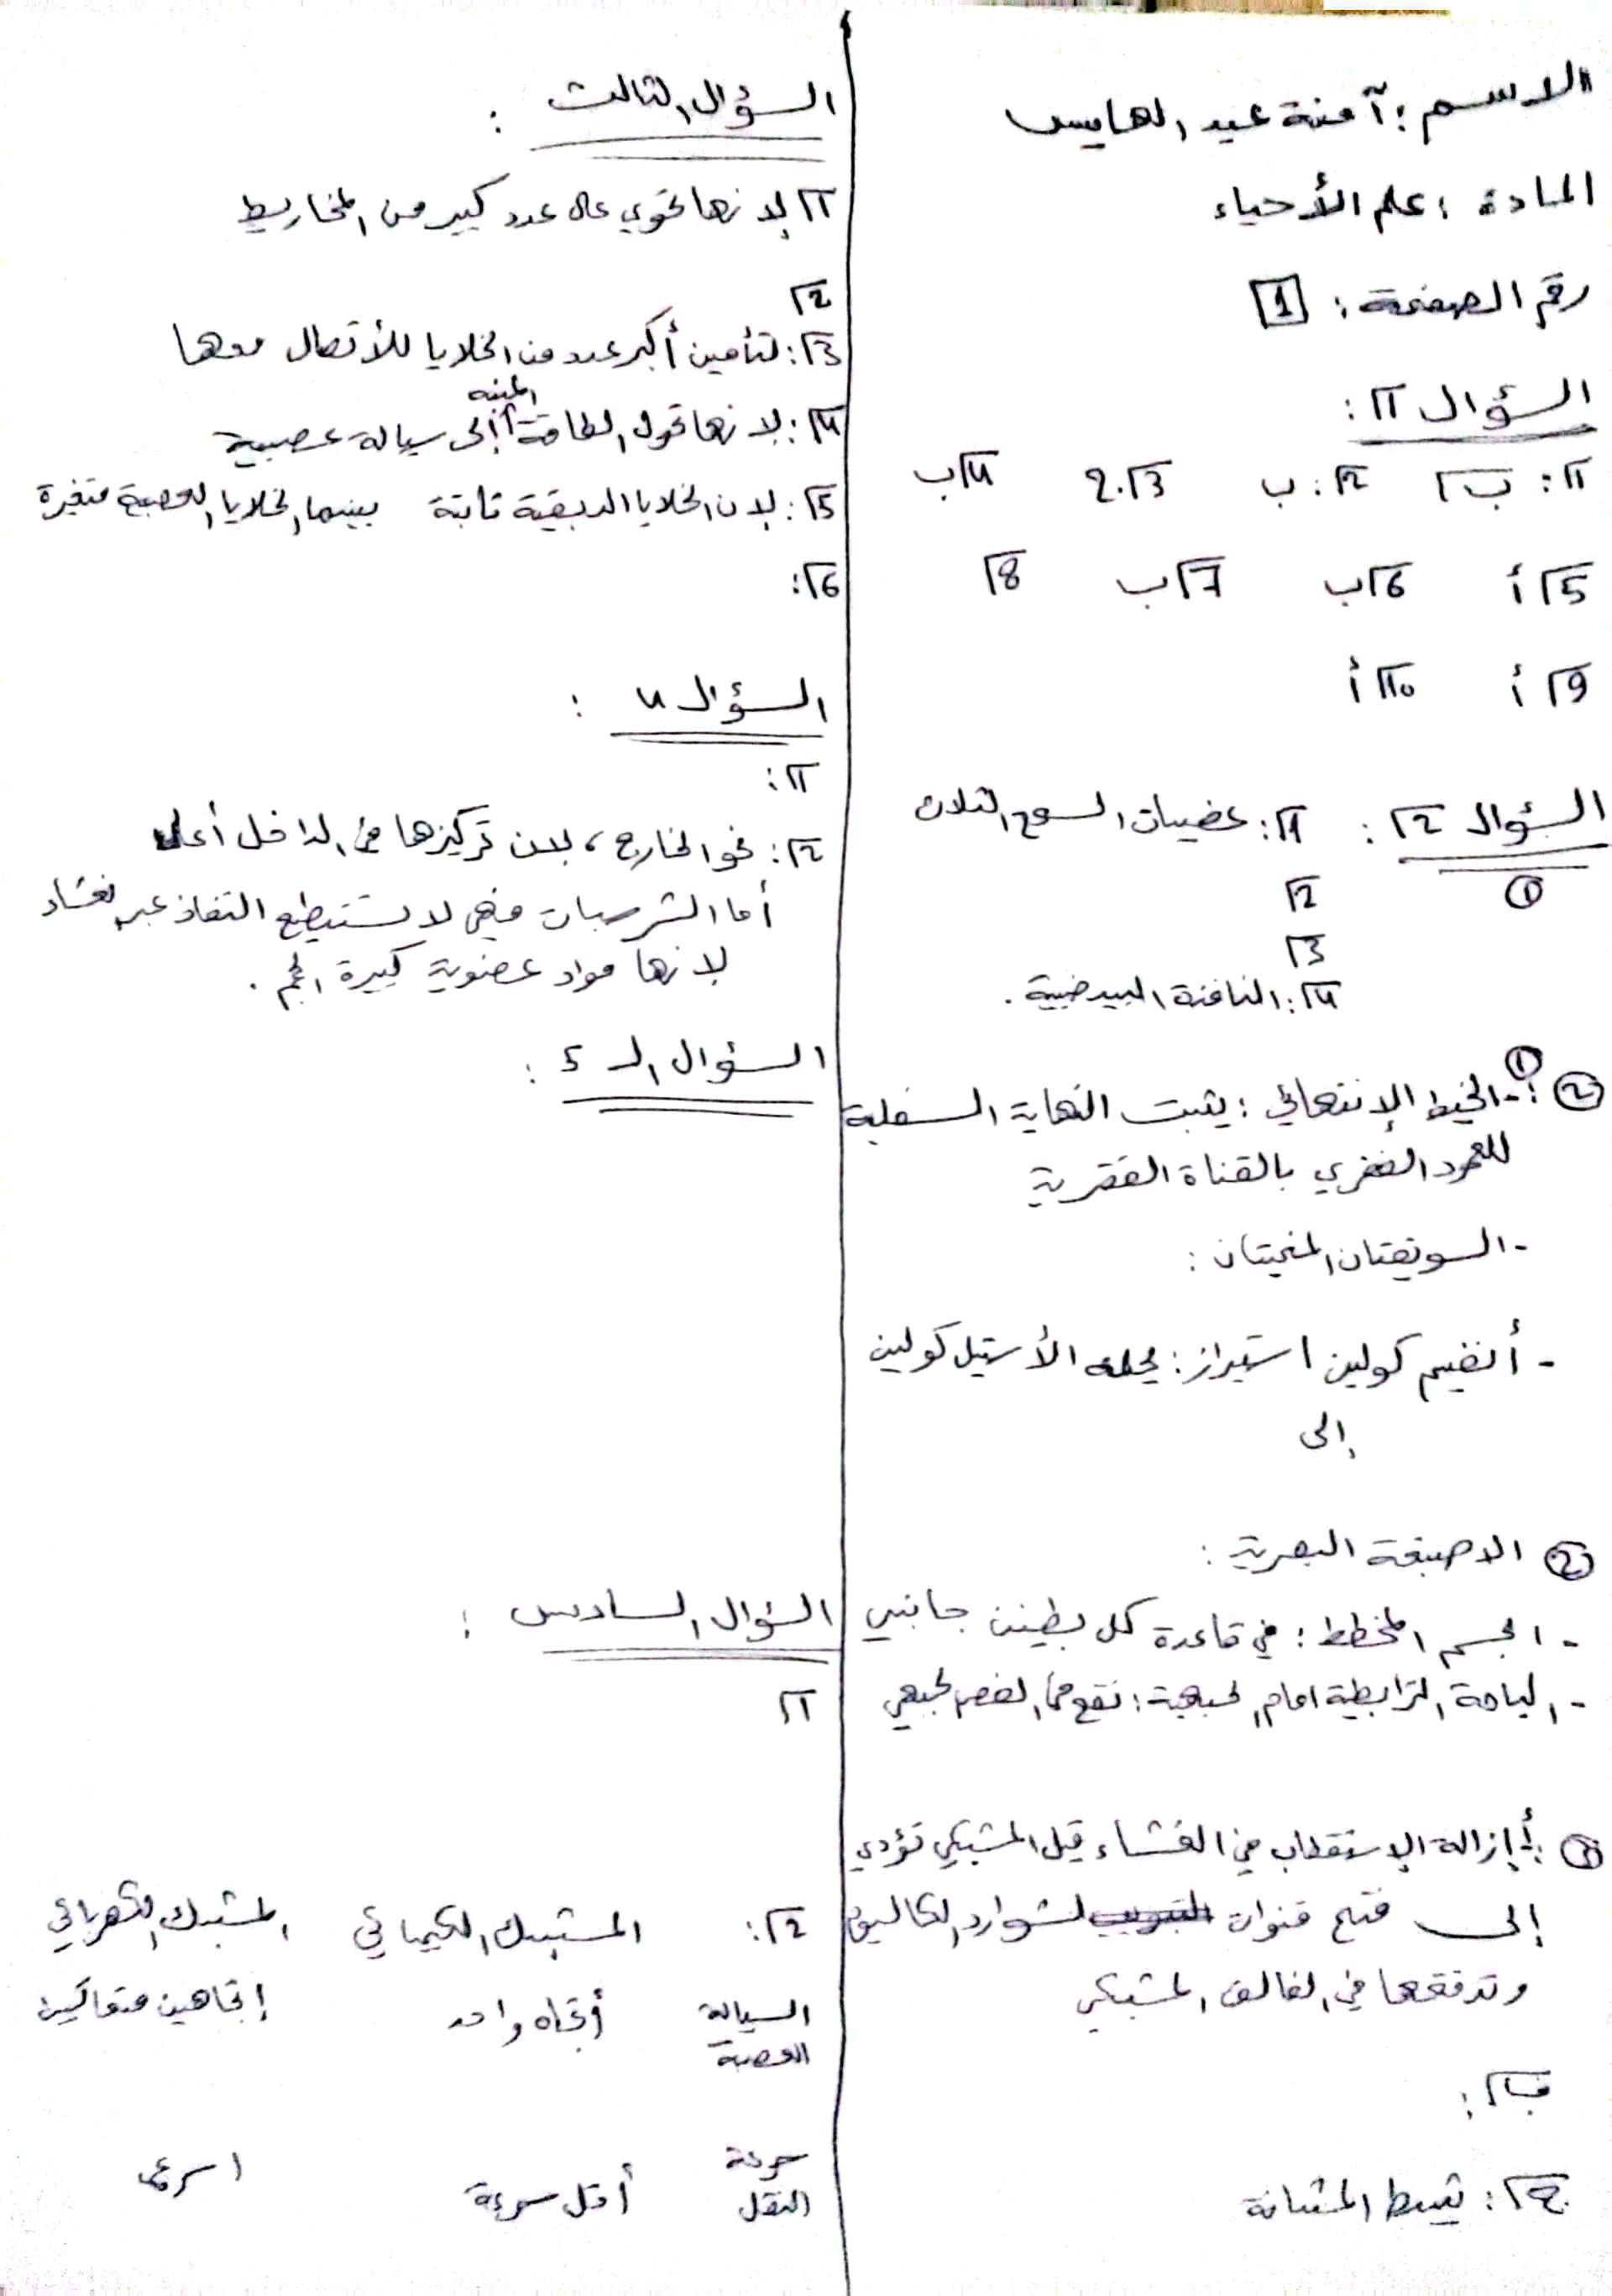 الاسم : آمنة عيد الهايس
المادة : علم الأحياء
رقم الصفحة : 1
السؤال 1 :
1 : ب 2 : ب 3 . 2 4 ب
5 أ 6 ب 7 ب 8
9 أ 10 أ
السؤال 2 : 1 : عضيات السمع الثلاث
1 2
3
4 : النافذة البيضية .
2 : 1 - الخيط الإنتهائي : يثبت النهاية السفلية
للعمود الفقري بالقناة الفقرية
- السويقتان المخيتان :
- أنظيم كولين استيراز : يحلمه الأستيل كولين
إلى
2 الاصبغة البصرية :
- الجسم المخطط : في قاعدة كل بطين جانبي
- الباحة الترابطية امام الجبهية : تقع في الفص الجبهي
3 : أ إزالة الإستقطاب في الغشاء قبل المشبكي تؤدي
إلى فتح قنوات لشوارد الكالسيوم
وتدفقها في الفالق المشبكي
ب :
ج : تثبيط المثانة
السؤال الثالث :
1 لإنها تحوي على عدد كبير من المخاريط
2
3 : لتأمين أكبر عدد من الخلايا للأتصال معها
4 : لانها تحول الطاقة المنبه إلى سيالة عصبية
5 : لإن الخلايا الدبقية ثابتة بينما الخلايا العصبية متغيرة
6 :
السؤال 4 :
1 :
2 : نحو الخارج ، لان تركيزها في الداخل أعلى
أما الشرسبات فهي لا تستيطع النفاذ عبر الغشاء
لانها مواد عضوية كبيرة الحجم .
السؤال الـ 5 :
السؤال السادس :
1
2 : المشبك الكيميائي المشبك الكهربائي
السيالة العصبية أتجاه واحد إتجاهين متعاكسين
سرعة النقل أقل سرعة اسرع